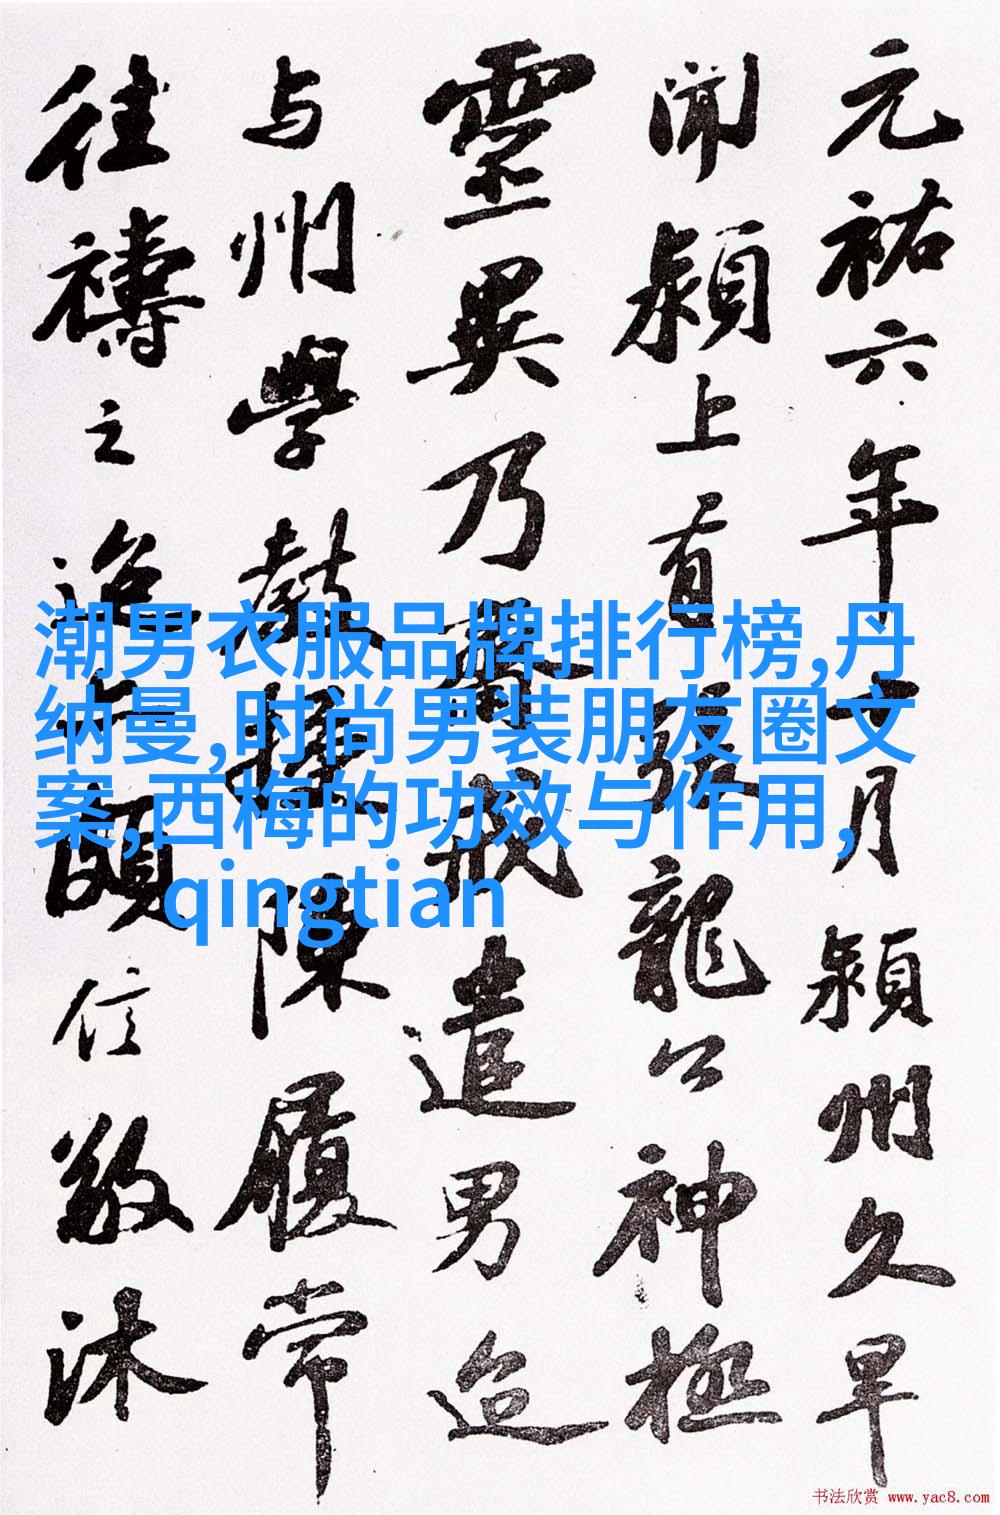 元祐六年月潁州久旱
聞潁上有張龍公神極
靈異乃齋戒遣男迨
与州學教授陳履常
往禱之迨亦頗信敬沐
潮男衣服品牌排行榜,丹
纳曼,时尚男装朋友圈文
案,西梅的功效与作用,
qingtian
书法欣赏 www.yac8.com